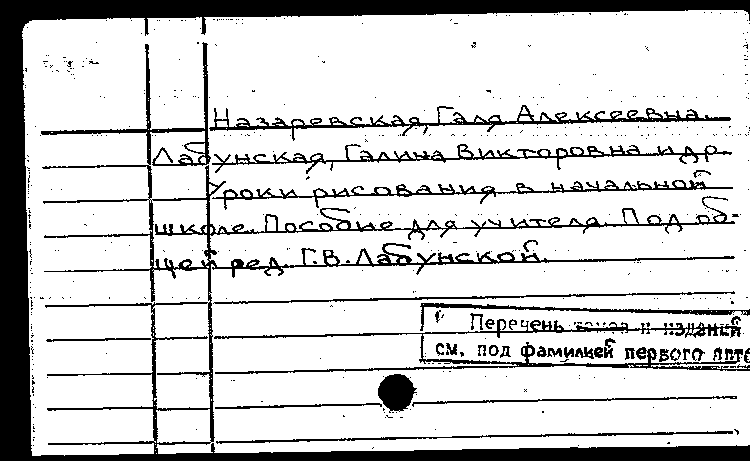 Назаревская, Галя Алексеевна.
Лабунская, Галина Викторовна и др.
Уроки рисования в начальной
школе. Пособие для учителя. Под об-
щей ред. Г.В. Лабунской.
Перечень томов и изданий
см. под фамилией первого авто